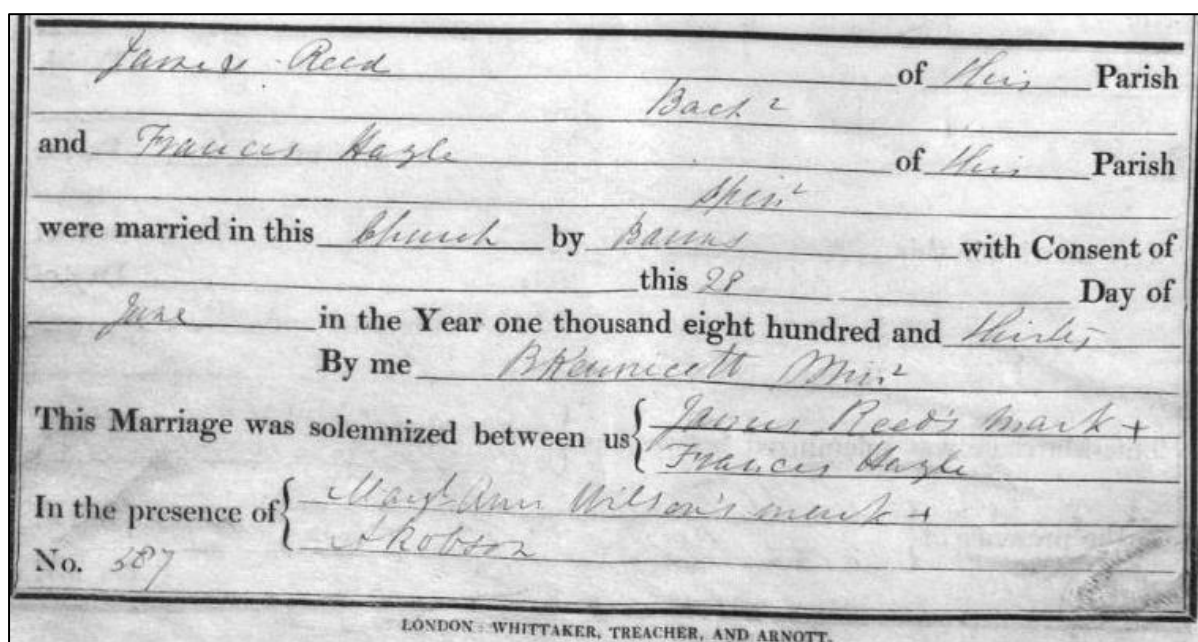 James Reed of this Parish
Bachr
and Frances Hagle of this Parish
Spinr
were married in this Church by Banns with Consent of
this 28 Day of
June in the Year one thousand eight hundred and thirty
By me B Kennicott Minr
This Marriage was solemnized between us { James Reed's mark +
Frances Hagle
In the presence of { Mary Ann Wilson's mark +
A Robson
No. 587
LONDON: WHITTAKER, TREACHER, AND ARNOTT.